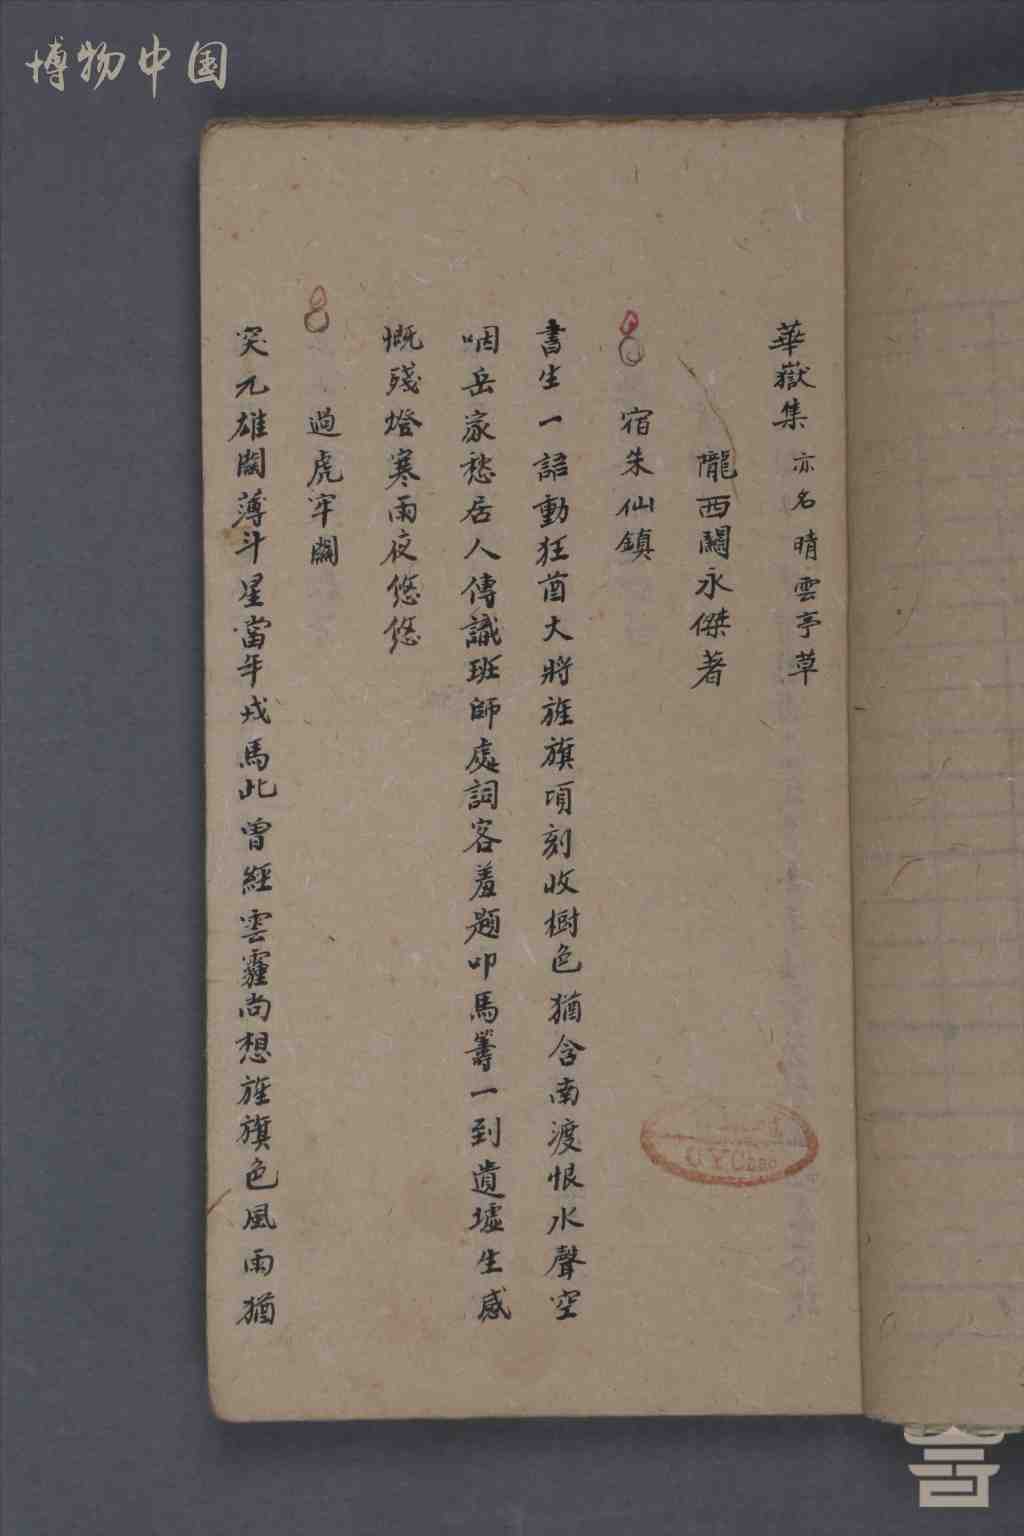 博物中国
華嶽集 亦名晴雲亭草
隴西關永傑著
宿朱仙鎮
書生一語動狂酋大將旌旗頃刻收樹色猶含南渡恨水聲空
咽岳家愁居人傳識班師處詞客羞題叩馬籌一到遺墟生感
慨殘燈寒雨夜悠悠
過虎牢關
突兀雄關薄斗星當年戎馬此曾經雲霾尚想旌旗色風雨猶